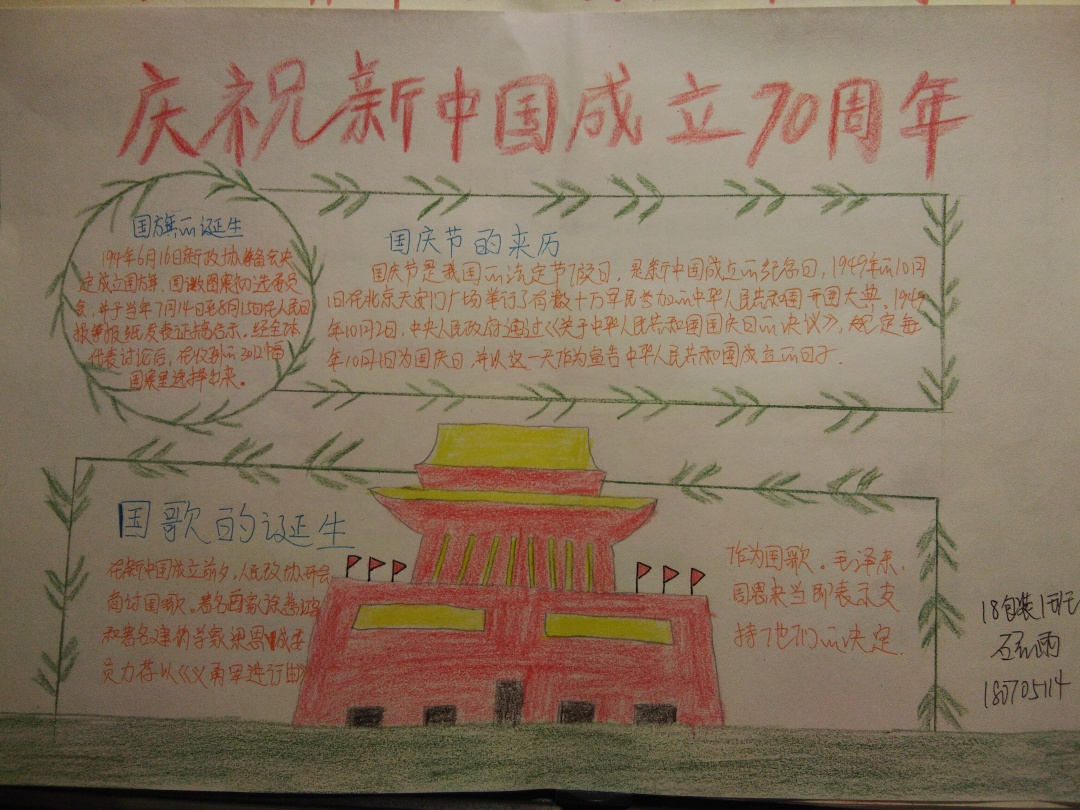 庆祝新中国成立70周年
国旗的诞生
194年6月16日新政协筹备会决
定成立国旗、国徽图案初选委员
会，并于当年7月14日至8月15日在人民日
报等报纸发表征稿启示。经全体
代表讨论后，在收到的3012幅
图案里选择出来。
国庆节的来历
国庆节是我国的法定节假日，是新中国成立的纪念日，1949年的10月
1日在北京天安门广场举行了有数十万军民参加的中华人民共和国开国大典。1949
年10月2日，中央人民政府通过《关于中华人民共和国国庆日的决议》，规定每
年10月1日为国庆日，并以这一天作为宣告中华人民共和国成立的日子.
国歌的诞生
在新中国成立前夕，人民政协开会
商讨国歌。著名画家徐悲鸿
和著名建筑学家梁思成委
员力荐以《义勇军进行曲》
作为国歌。毛泽东.
周恩来当即表示支
持了他们的决定.
18包装1班
石雨
180705114